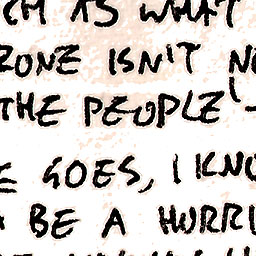 AS WHAT
ZONE ISN'T
THE PEOPLE'
GOES, I KNO
BE A HURRI